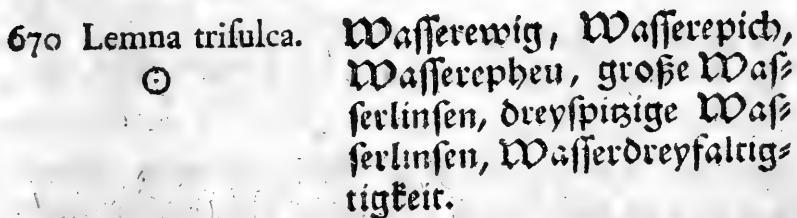 670 Lemna triſulca. Waſſerewig, Waſſerepich,
☉ Waſſerepheu, große Waſ⸗
ſerlinſen, dreyſpitzige Waſ⸗
ſerlinſen, Waſſerdreyfaltig⸗
tigkeit.